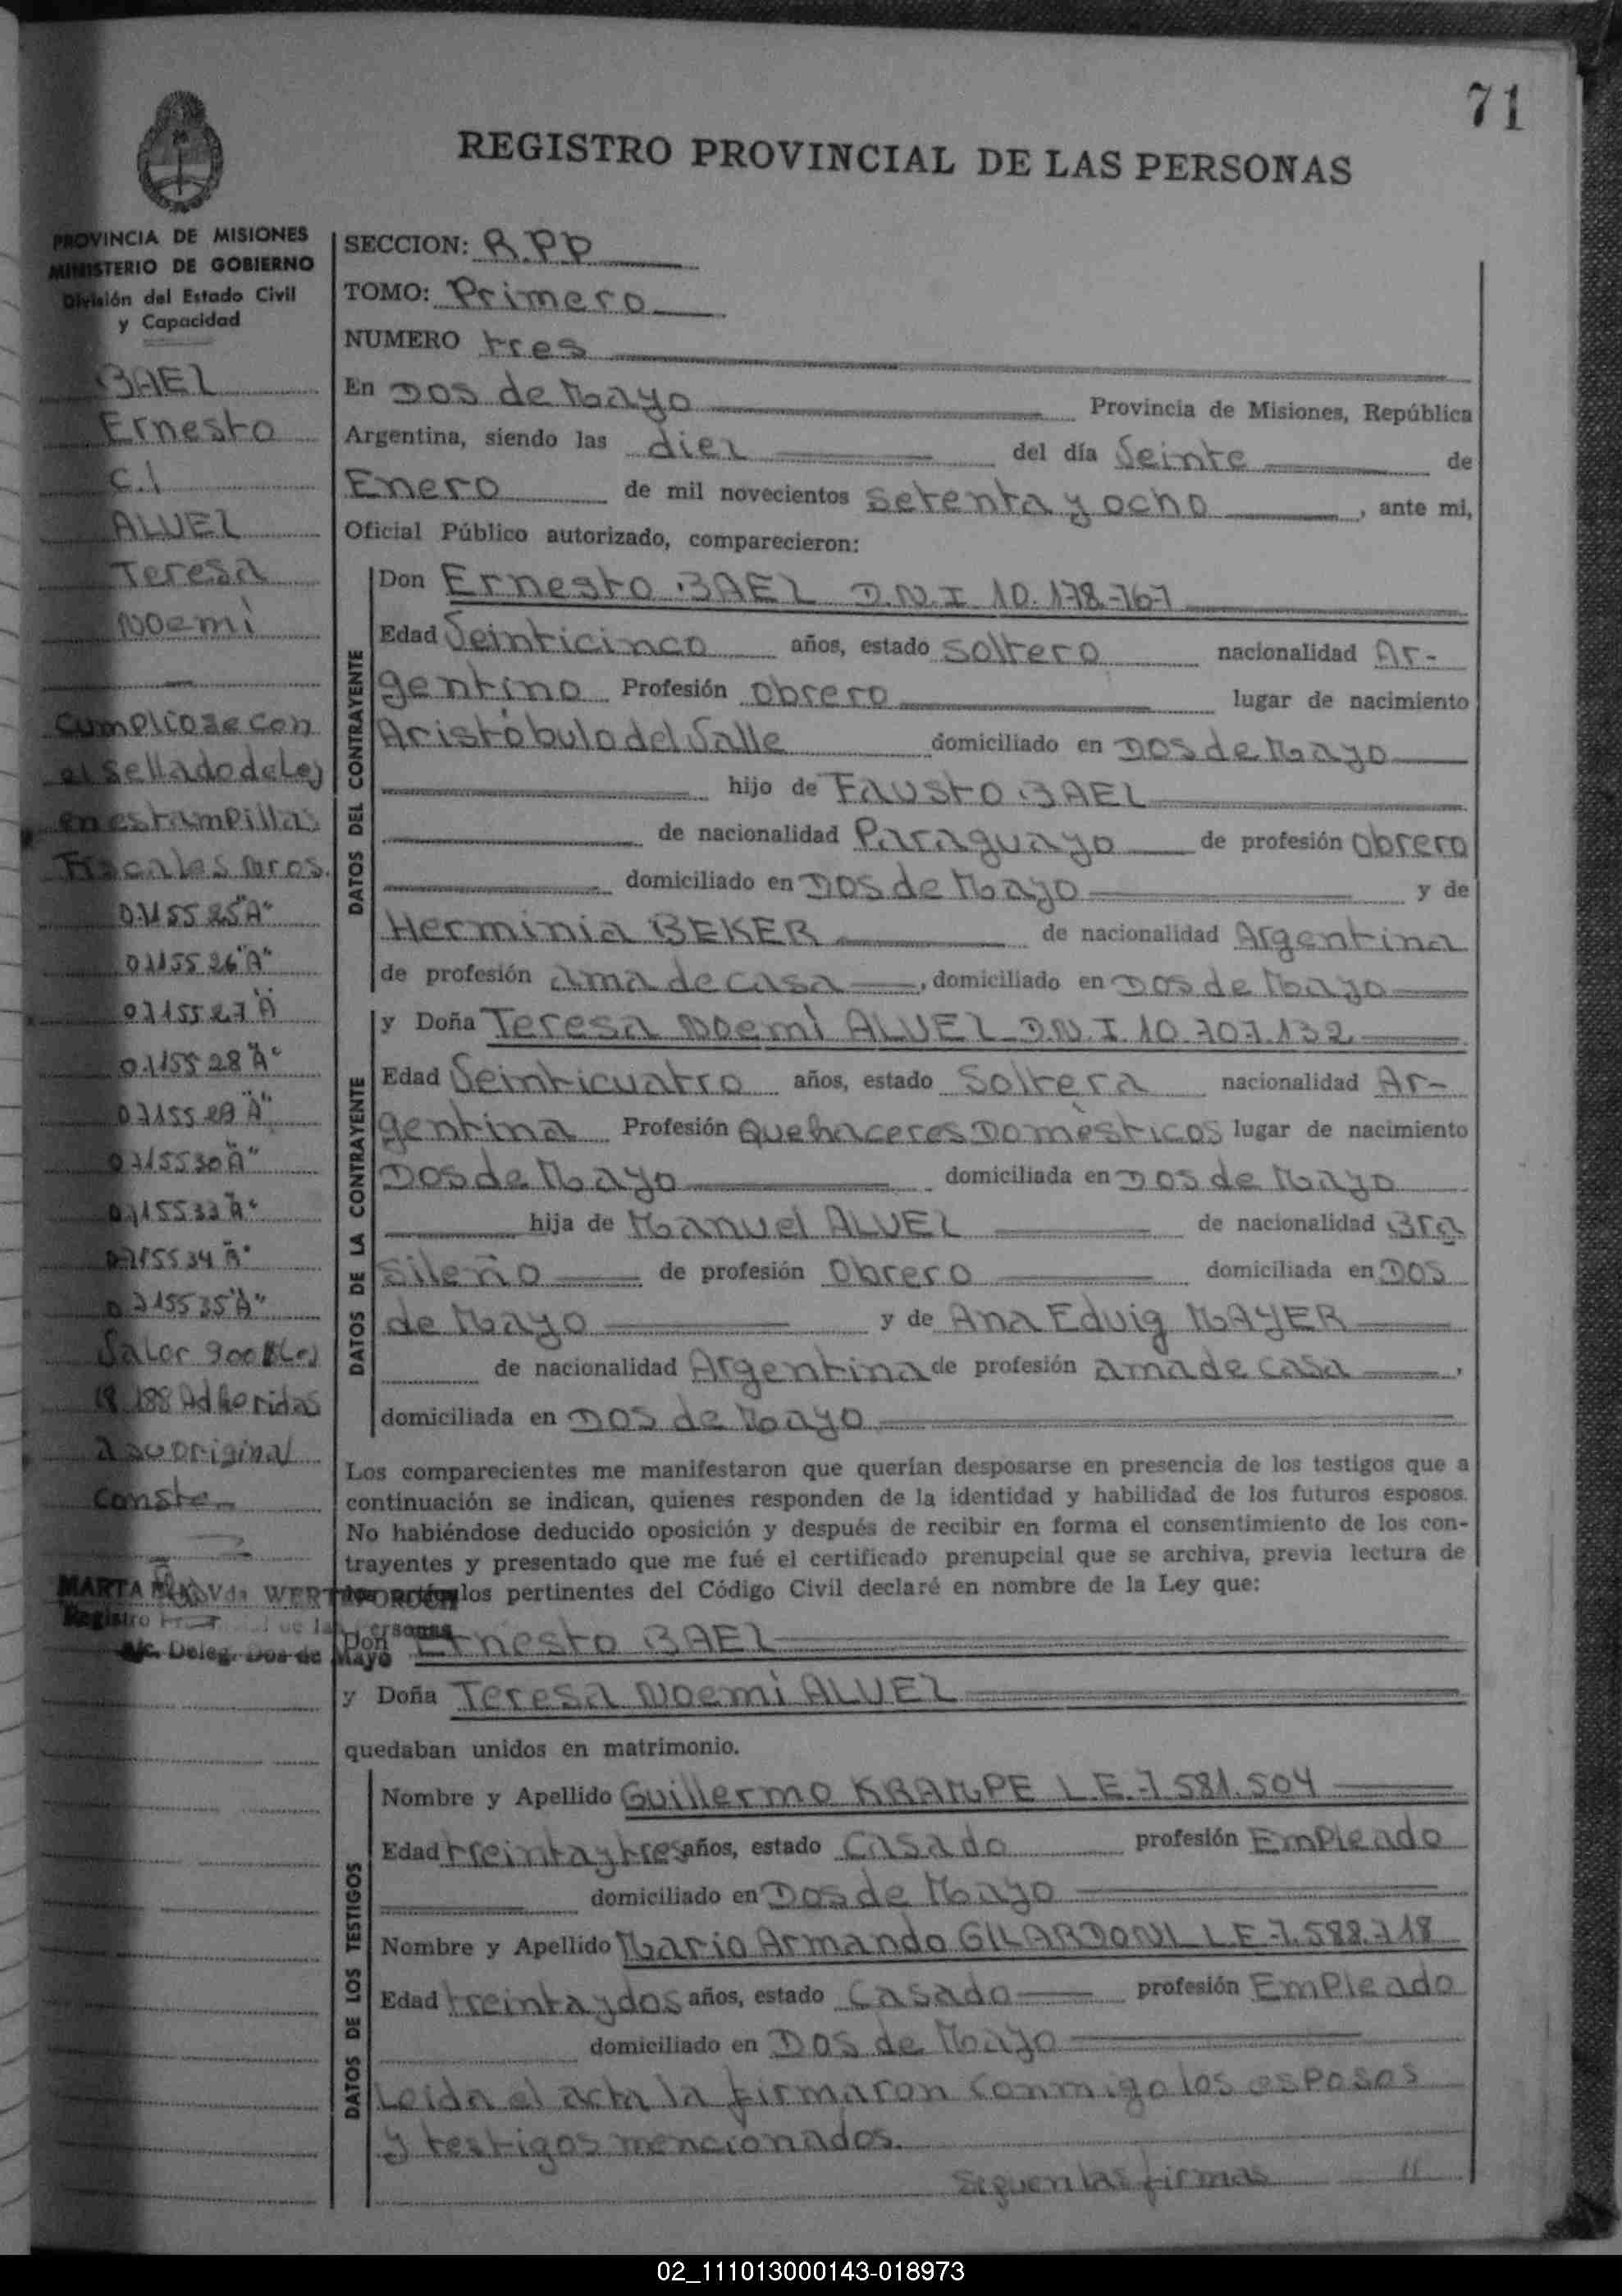 71
REGISTRO PROVINCIAL DE LAS PERSONAS
PROVINCIA DE MISIONES
MINISTERIO DE GOBIERNO
División del Estado Civil
y Capacidad
BAEZ
Ernesto
c.l
ALVEZ
Teresa
Noemi
Cumplcose con
el Sellado de Ley
en estampillas
Fiscales Nros.
0715525"A"
0715526"A"
0715527"A
0715528"A"
0715529"A"
0715530"A"
0715533"A"
0715534"A"
0715535"A"
Valor 900 $Ley
18.188 Adheridas
a su original
Conste
MARTA Vda WERT
Registro
A/c. Deleg. Dos de Mayo
SECCION: R.P.P
TOMO: Primero
NUMERO tres
En Dos de Mayo Provincia de Misiones, República
Argentina, siendo las diez del día Veinte de
Enero de mil novecientos setenta y ocho, ante mi,
Oficial Público autorizado, comparecieron:
DATOS DEL CONTRAYENTE
Don Ernesto BAEZ D.N.I 10.178.767
Edad Veinticinco años, estado Soltero nacionalidad Ar-
gentino Profesión obrero lugar de nacimiento
Aristóbulo del Valle domiciliado en Dos de Mayo
hijo de Fausto BAEZ
de nacionalidad Paraguayo de profesión obrero
domiciliado en Dos de Mayo y de
Herminia BEKER de nacionalidad Argentina
de profesión ama de casa, domiciliado en Dos de Mayo
DATOS DE LA CONTRAYENTE
y Doña Teresa Noemi ALVEZ D.N.I. 10.707.132
Edad Veinticuatro años, estado Soltera nacionalidad Ar-
gentina Profesión Quehaceres Domèsticos lugar de nacimiento
Dos de Mayo domiciliada en Dos de Mayo
hija de Manuel ALVEZ de nacionalidad Bra
sileño de profesión Obrero domiciliada en Dos
de Mayo y de Ana Eduig MAYER
de nacionalidad Argentina de profesión ama de casa,
domiciliada en Dos de Mayo
Los comparecientes me manifestaron que querían desposarse en presencia de los testigos que a
continuación se indican, quienes responden de la identidad y habilidad de los futuros esposos.
No habiéndose deducido oposición y después de recibir en forma el consentimiento de los con-
trayentes y presentado que me fué el certificado prenupcial que se archiva, previa lectura de
los artículos pertinentes del Código Civil declaré en nombre de la Ley que:
Don Ernesto BAEZ
y Doña Teresa Noemi ALVEZ
quedaban unidos en matrimonio.
DATOS DE LOS TESTIGOS
Nombre y Apellido Guillermo KRAMPE L.E. 7.581.504
Edad treinta y tres años, estado Casado profesión Empleado
domiciliado en Dos de Mayo
Nombre y Apellido Mario Armando GILARDONI L E 7.588.718
Edad treinta y dos años, estado Casado profesión Empleado
domiciliado en Dos de Mayo
Leida el acta la firmaron conmigo los esposos
y testigos mencionados.
Siguen las firmas //
02_111013000143-018973